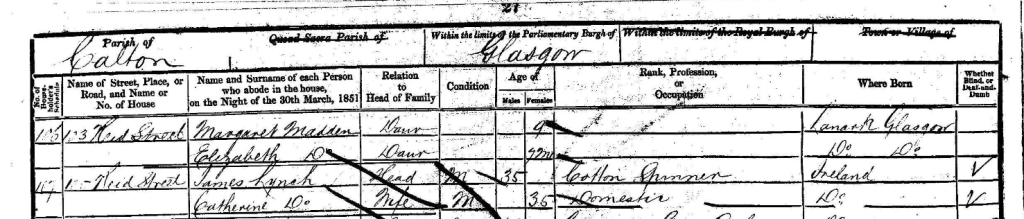 27
Parish of Calton
Quoad Sacra Parish of
Within the limits of the Parliamentary Burgh of Glasgow
Within the limits of the Royal Burgh of
Town or Village of
No. of House-holder's Schedule
Name of Street, Place, or Road, and Name or No. of House
Name and Surname of each Person who abode in the house, on the Night of the 30th March, 1851
Relation to Head of Family
Condition
Age of
Males Females
Rank, Profession, or Occupation
Where Born
Whether Blind, or Deaf-and-Dumb
Margaret Madden Daur 9 Lanark Glasgow
Elizabeth Do Daur Do Do
Street James Lynch Head M 35 Cotton Ireland
Catherine Do Wife M 36 Domestic Do